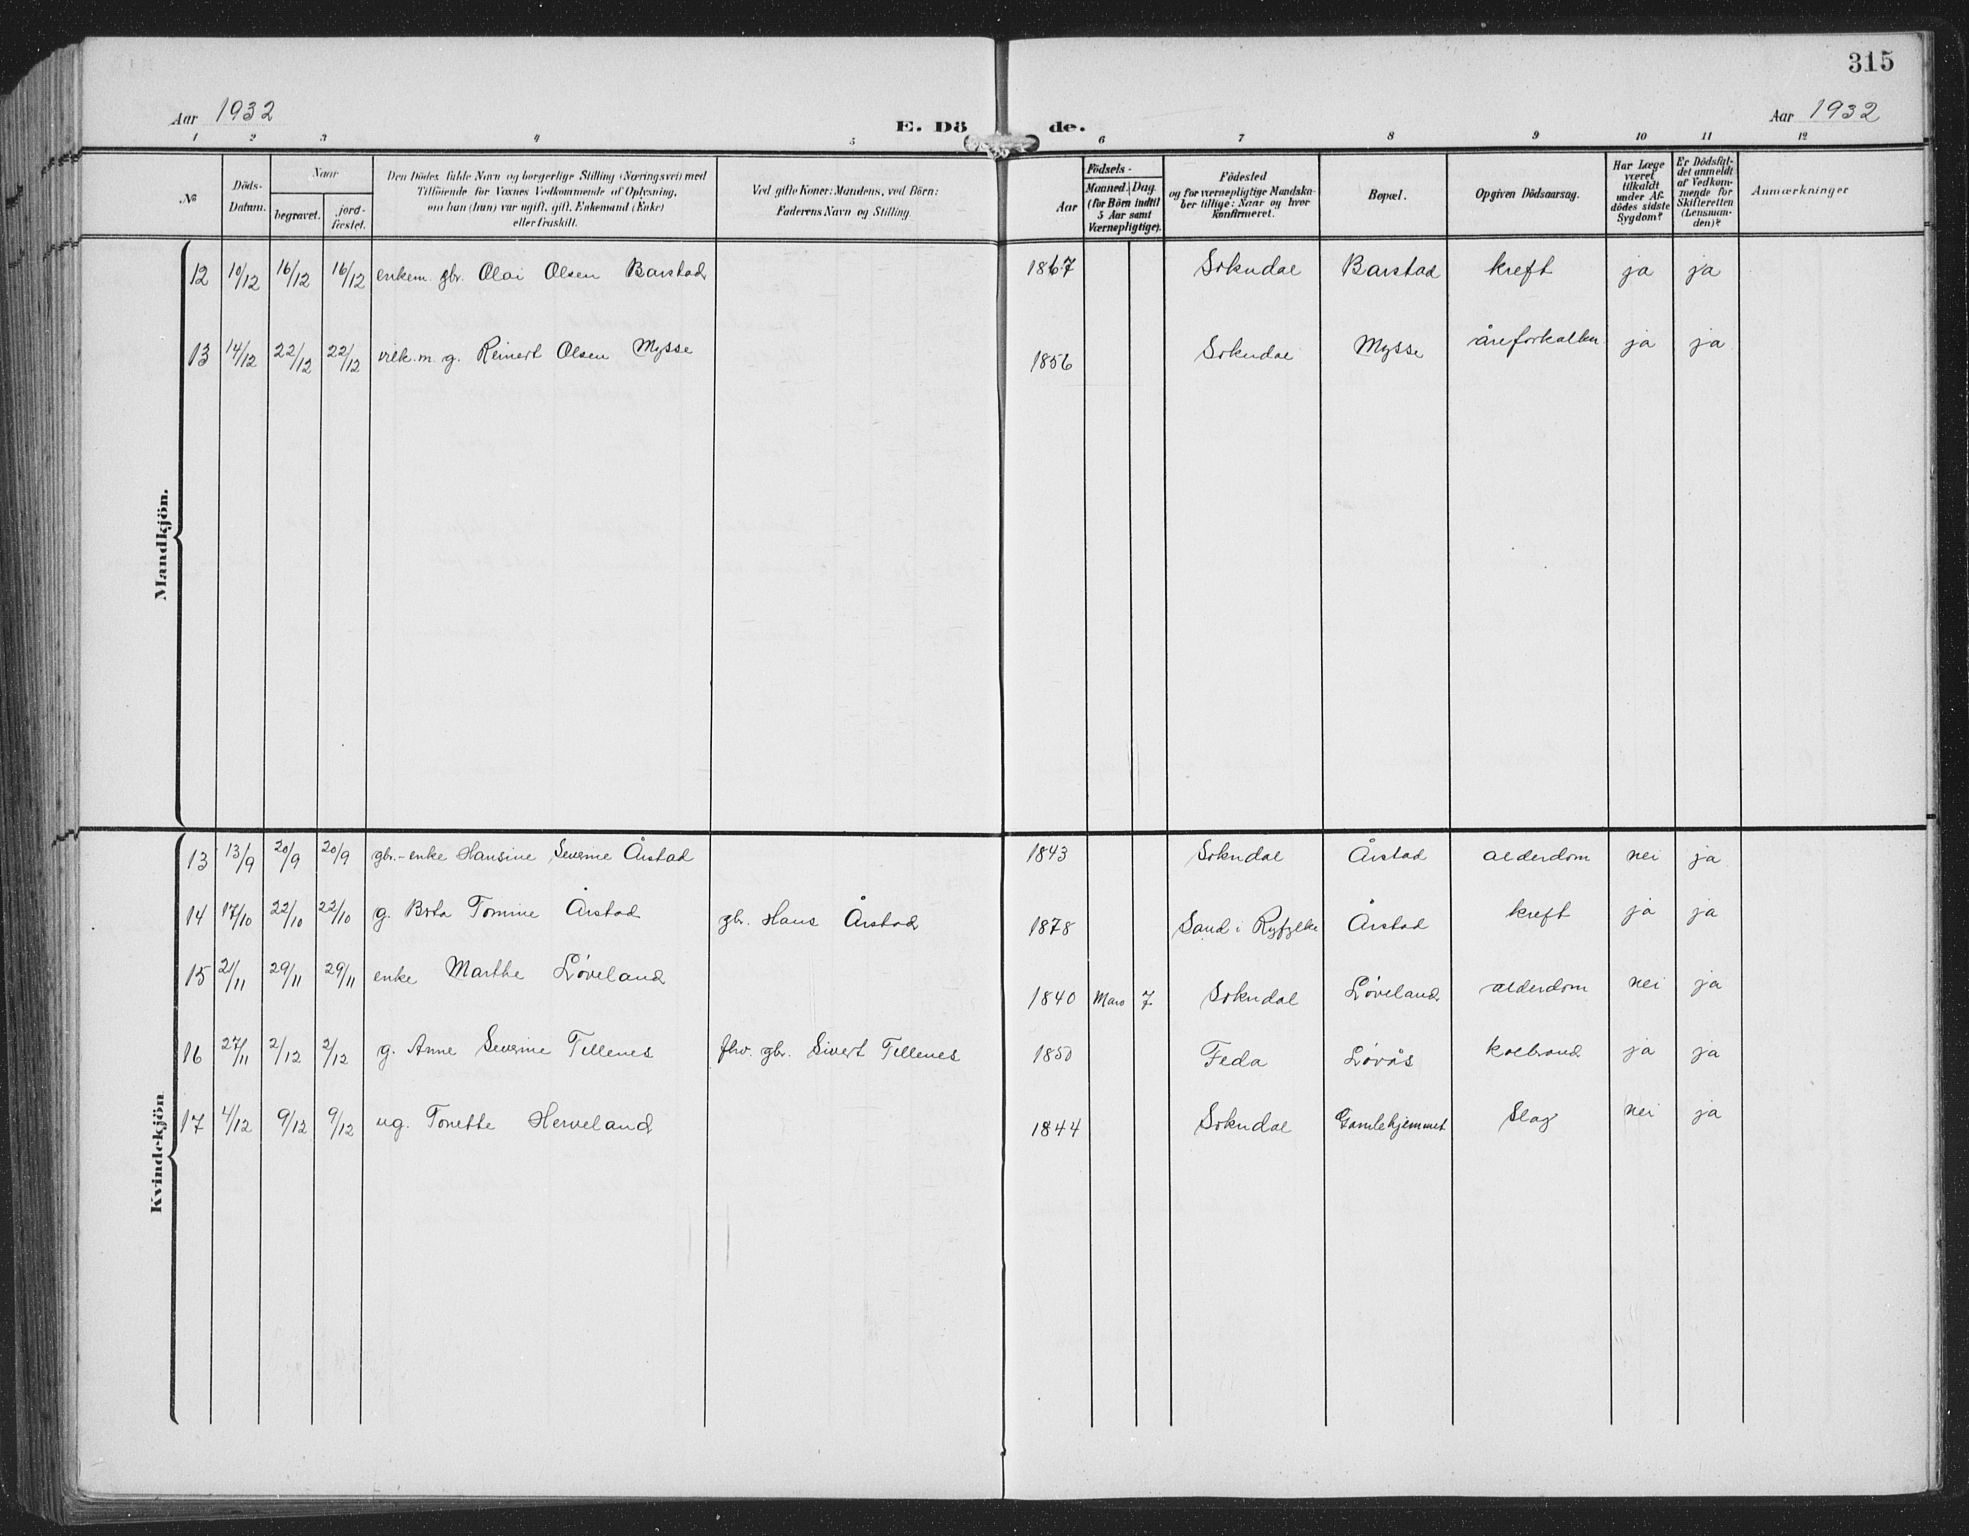 315
Aar 1932
E. Dö de.
Aar 1932
1 2 3 4 5 6 7 8 9 10 11 12
№
Döds-
Datum.
Naar
begravet.
jord-
fæstet.
Den Dödes fulde Navn og borgerlige Stilling (Næringsvei) med
Tilföiende for Voxnes Vedkommende af Oplysning,
om han (hun) var ugift, gift, Enkemand (Enke)
eller fraskilt.
Ved gifte Koner: Mandens, ved Börn:
Faderens Navn og Stilling.
Födsels-
Aar
Maaned. Dag.
(for Börn indtil
5 Aar samt
Værnepligtige).
Födested
og for værnepligtige Mandska-
ber tillige: Naar og hvor
konfirmeret.
Bopæl.
Opgiven Dödsaarsag.
Har Læge
været
tilkaldt
under Af-
dödes sidste
Sygdom?
Er Dödsfal-
det anmeldt
af Vedkom-
mende for
Skifteretten
(Lensman-
den)?
Anmærkninger
Mandkjön.
12 10/12 16/12 16/12 enkem. gbr. Olai Olsen Barstad 1867 Sokndal Barstad kreft ja ja
13 14/12 22/12 22/12 g. Reinert Olsen Mysse 1856 Sokndal Mysse åreforkalkn ja ja
Kvindekjön
13 13/9 20/9 20/9 gbr.-enke Hansine Severine Årstad 1843 Sokndal Årstad alderdom nei ja
14 17/10 22/10 22/10 g. Berta Tomine Årstad gbr. Hans Årstad 1878 Sand i Ryfylke Årstad kreft ja ja
15 21/11 29/11 29/11 enke Marthe Løveland 1840 Mars 7 Sokndal Løveland alderdom nei ja
16 27/11 2/12 2/12 g. Anne Severine Tellenes fhv. gbr. Sivert Tellenes 1850 Feda Løvås kolbrand ja ja
17 4/12 9/12 9/12 ug. Tonette Herveland 1844 Sokndal Gamlehjemmet Slag nei ja